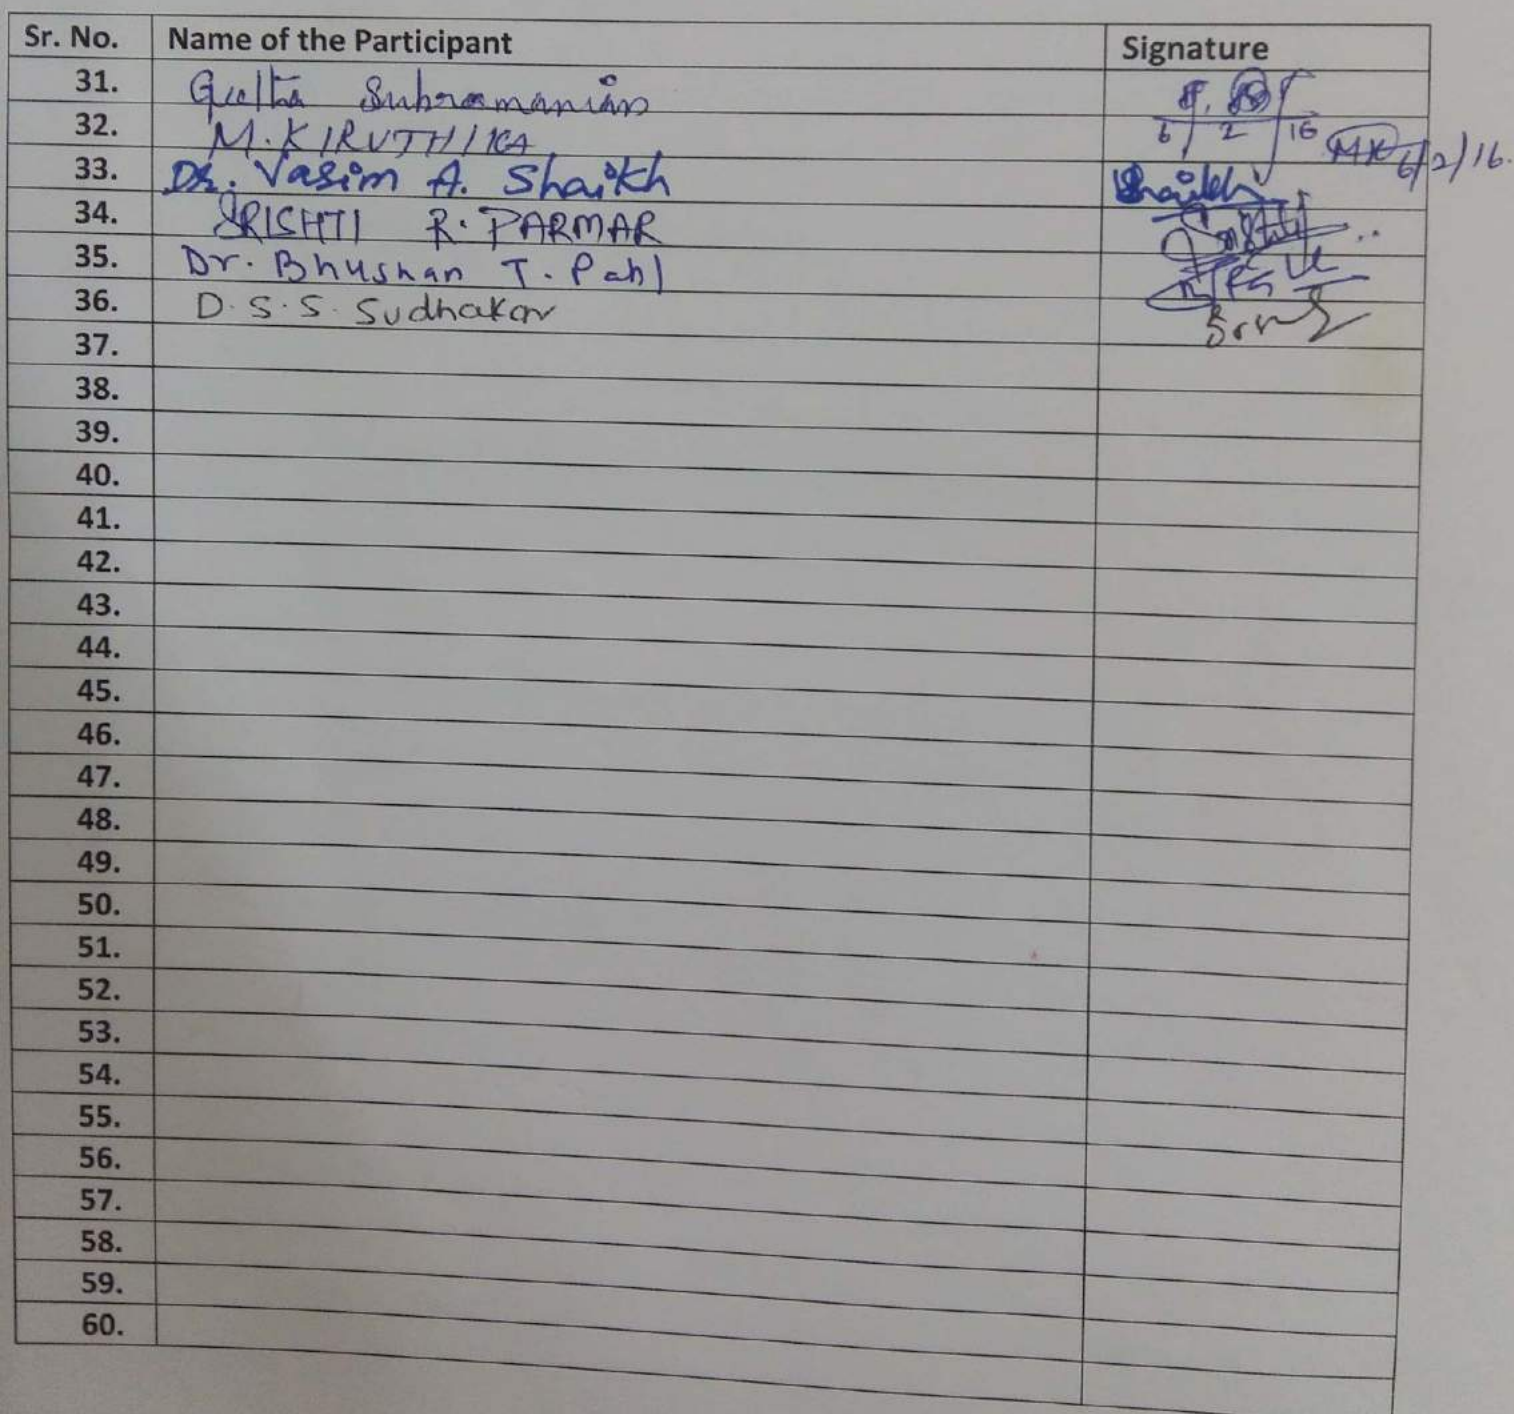 Sr. No. Name of the Participant Signature
31. Geetha Subramanian 6/2/16
32. M. KIRUTHIKA MK 6/2/16.
33. Dr. Vasim A. Shaikh Shaikh
34. SRISHTI R. PARMAR
35. Dr. Bhushan T. Patil
36. D. S. S. Sudhakar
37.
38.
39.
40.
41.
42.
43.
44.
45.
46.
47.
48.
49.
50.
51.
52.
53.
54.
55.
56.
57.
58.
59.
60.